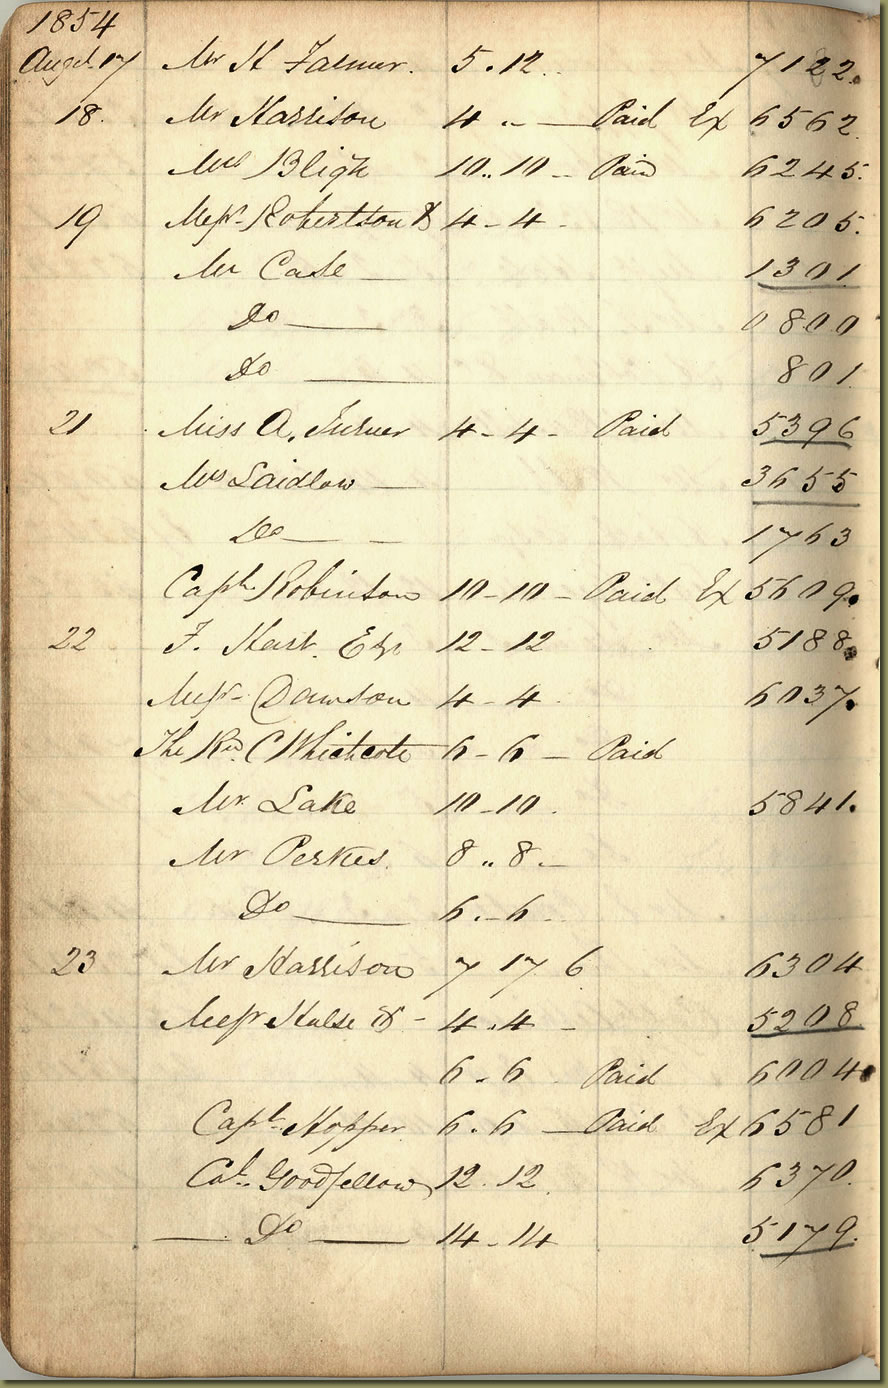 1854
Augt. 17 Mr H Farmer. 5.12.. 7122.
18. Mr Harrison 4 .. — Paid Ex 6562.
Mrs Bligh 10..10 – Paid 6245.
19 Messrs Robertson & 4–4– 6205.
Mr Case — 1301
Do — 0800
Do — 801
21 Miss A. Turner 4–4– Paid 5396
Mrs Laidlow — 3655
Do — – 1763
Capt. Robinson 10–10 – Paid Ex 5609.
22 F. Hart. Esqr 12–12 5188.
Messrs Dawson 4–4. 6037.
The Rev. C Whichcote 6–6 – Paid
Mr. Lake 10–10. 5841.
Mr Perkes. 8 .. 8.–
Do — 6.–6–
23 Mr Harrison 7 17 6 6304
Messrs Hulse & – 4.4 – 5208.
6.6 Paid 6004.
Capt. Hopper 6.6 — Paid Ex 6581
Col. Goodfellow 12.12. 6370.
— Do — 14–14 5179.